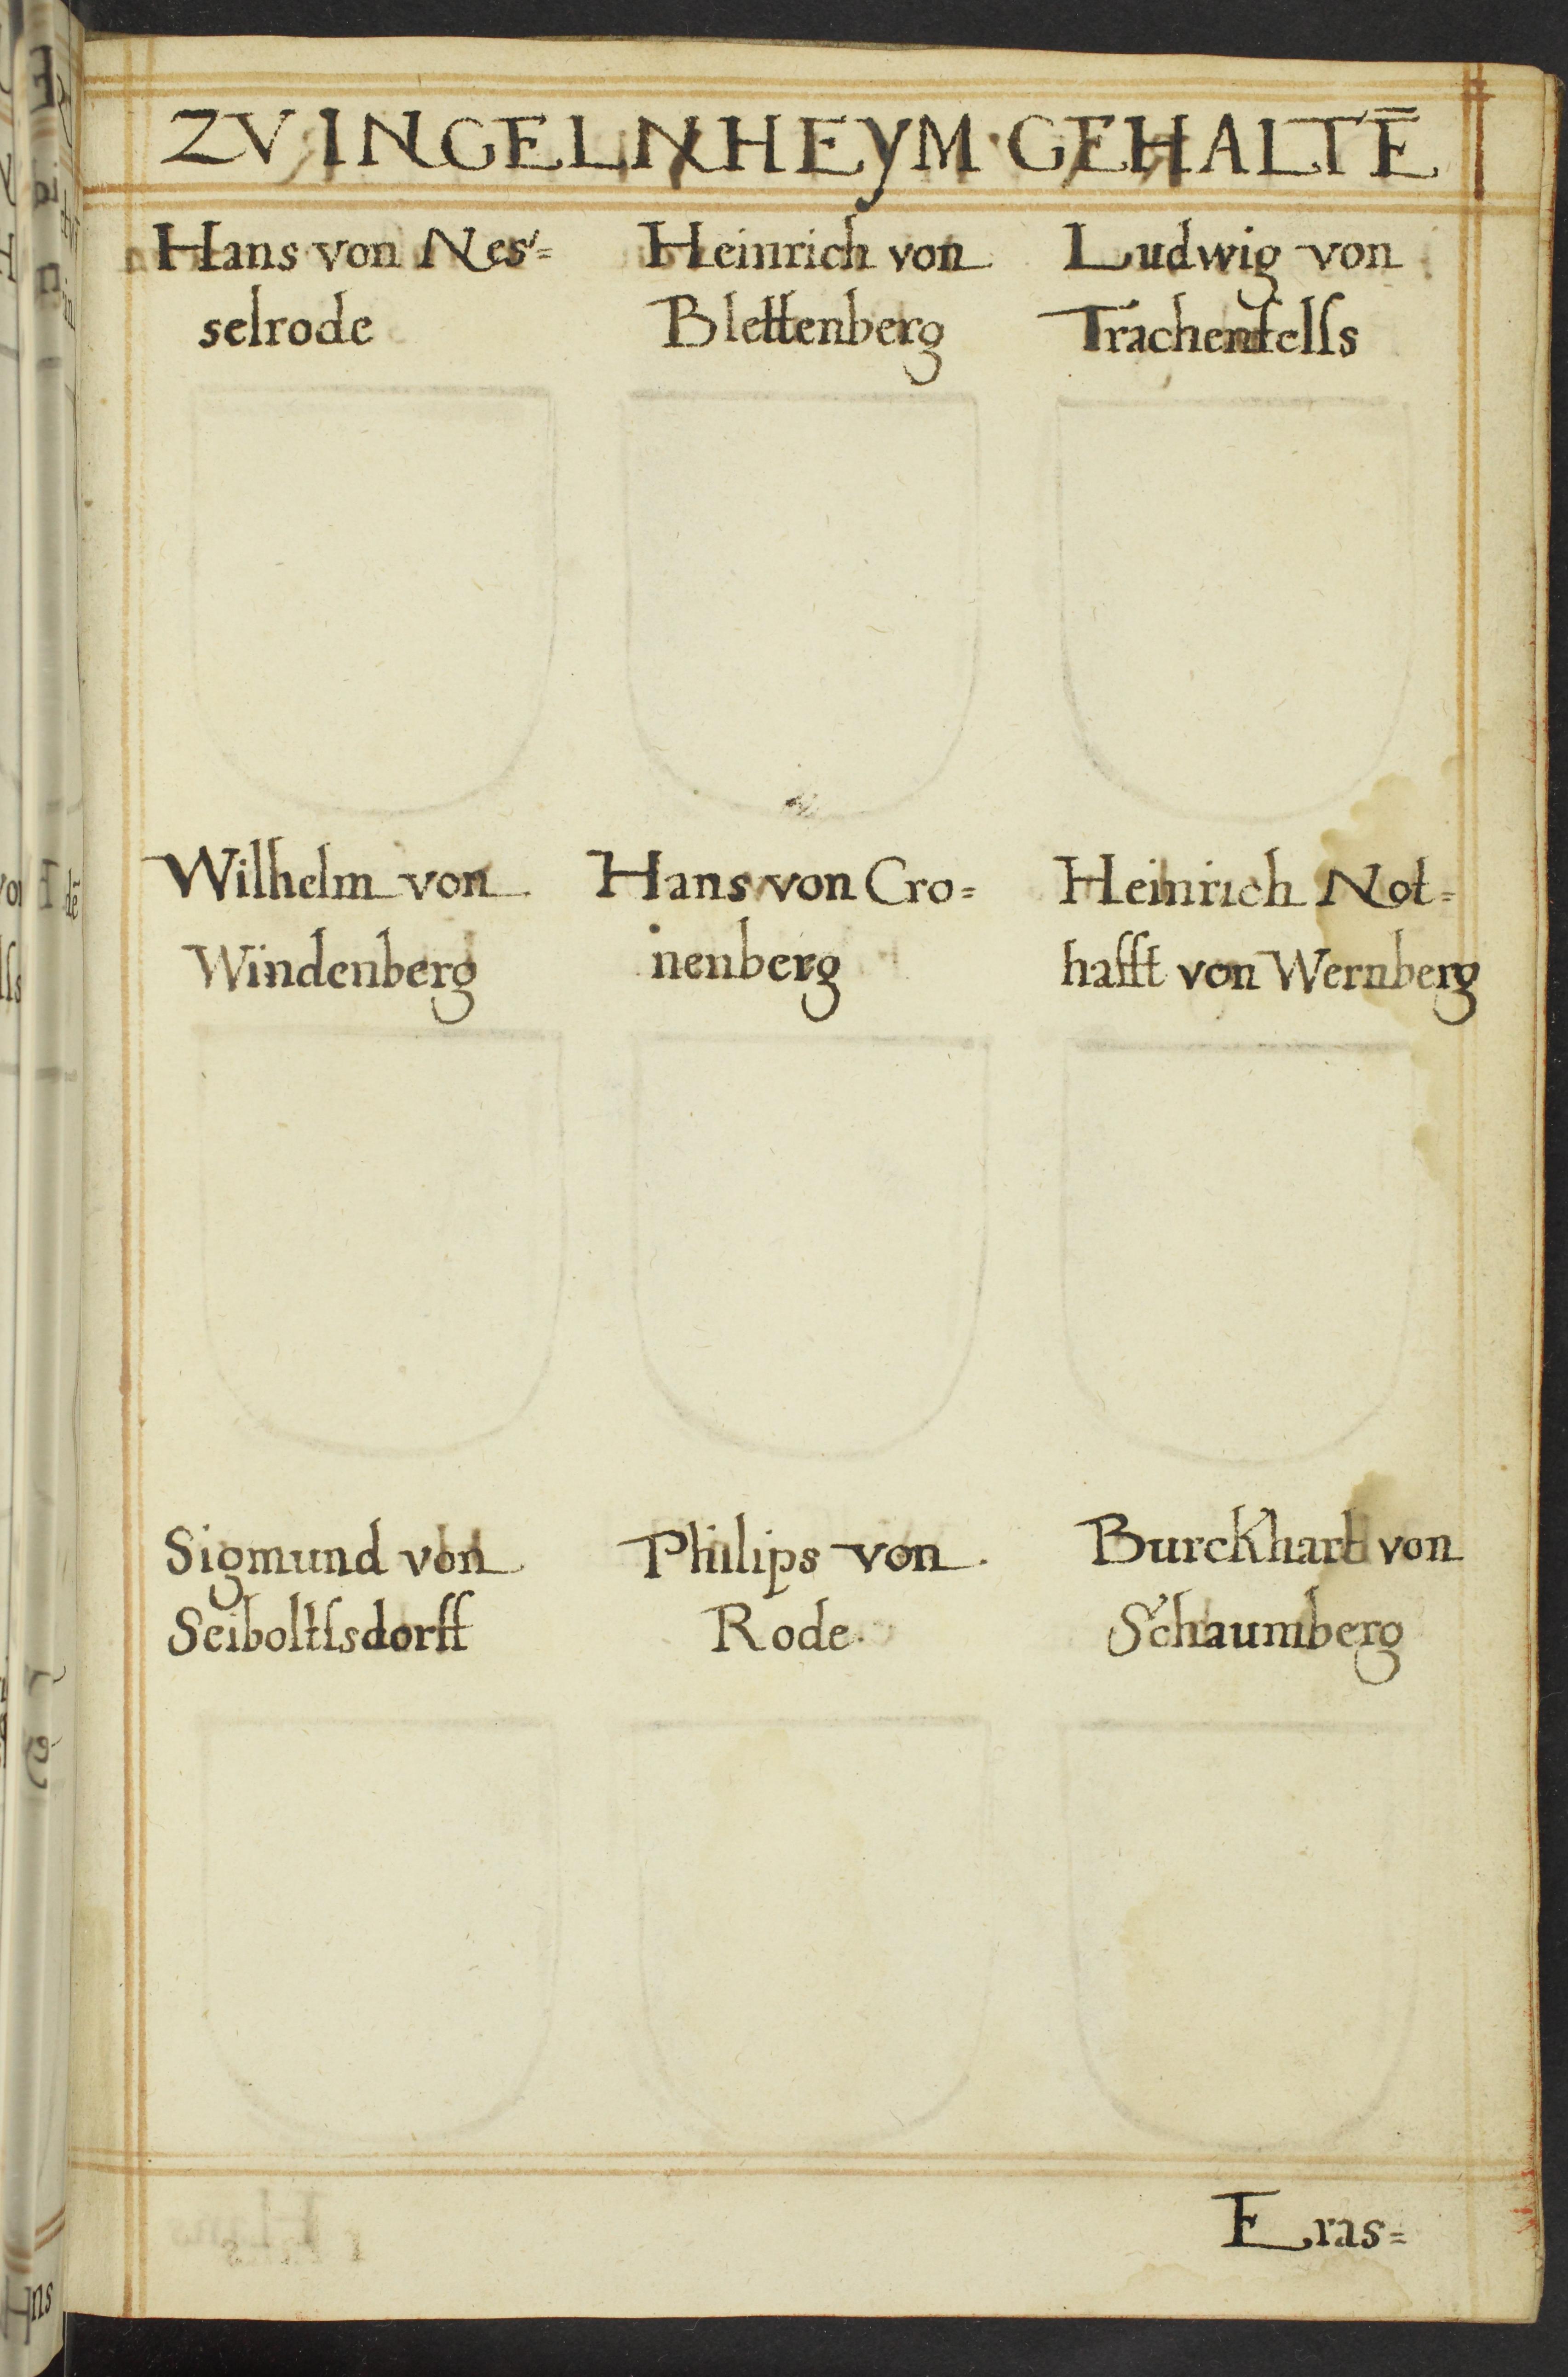 ZV INGELNHEYM · GEHALTĒ
Hans von Nes=
selrode
Heinrich von
Blettenberg
Ludwig von
Trachenfelſs
Wilhelm von
Windenberg
Hans von Cro=
nenberg
Heinrich Not=
hafft von Wernberg
Sigmund von
Seiboltſsdorff
Philips von
Rode.
Burckhart von
Schaumberg
Eras=